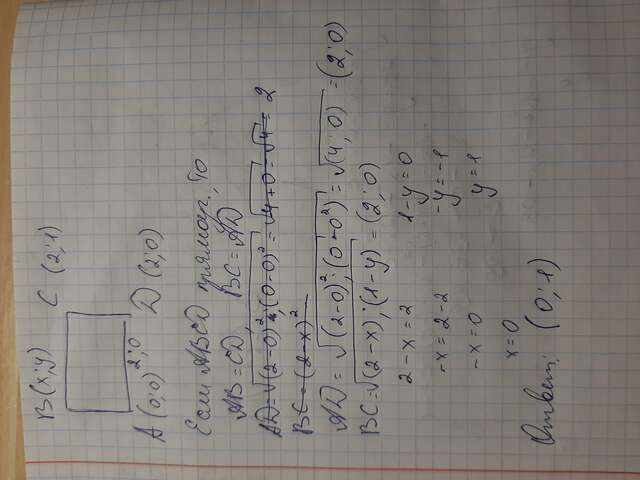 B(x;y) C (2;1)
A (0;0) 2;0 D (2;0)
Если ABCD прямоуг, то
AB=CD BC=AD
AD=√(2-0)²+(0-0)²=√4+0=√4=2
BC=(2-x)²
AD=√(2-0)²;(0+0²)=√(4;0)=(2;0)
BC=√(2-x);(1-y)=(2;0)
2-x=2 1-y=0
-x=2-2 -y=-1
-x=0 y=1
x=0
Ответ: (0;1)